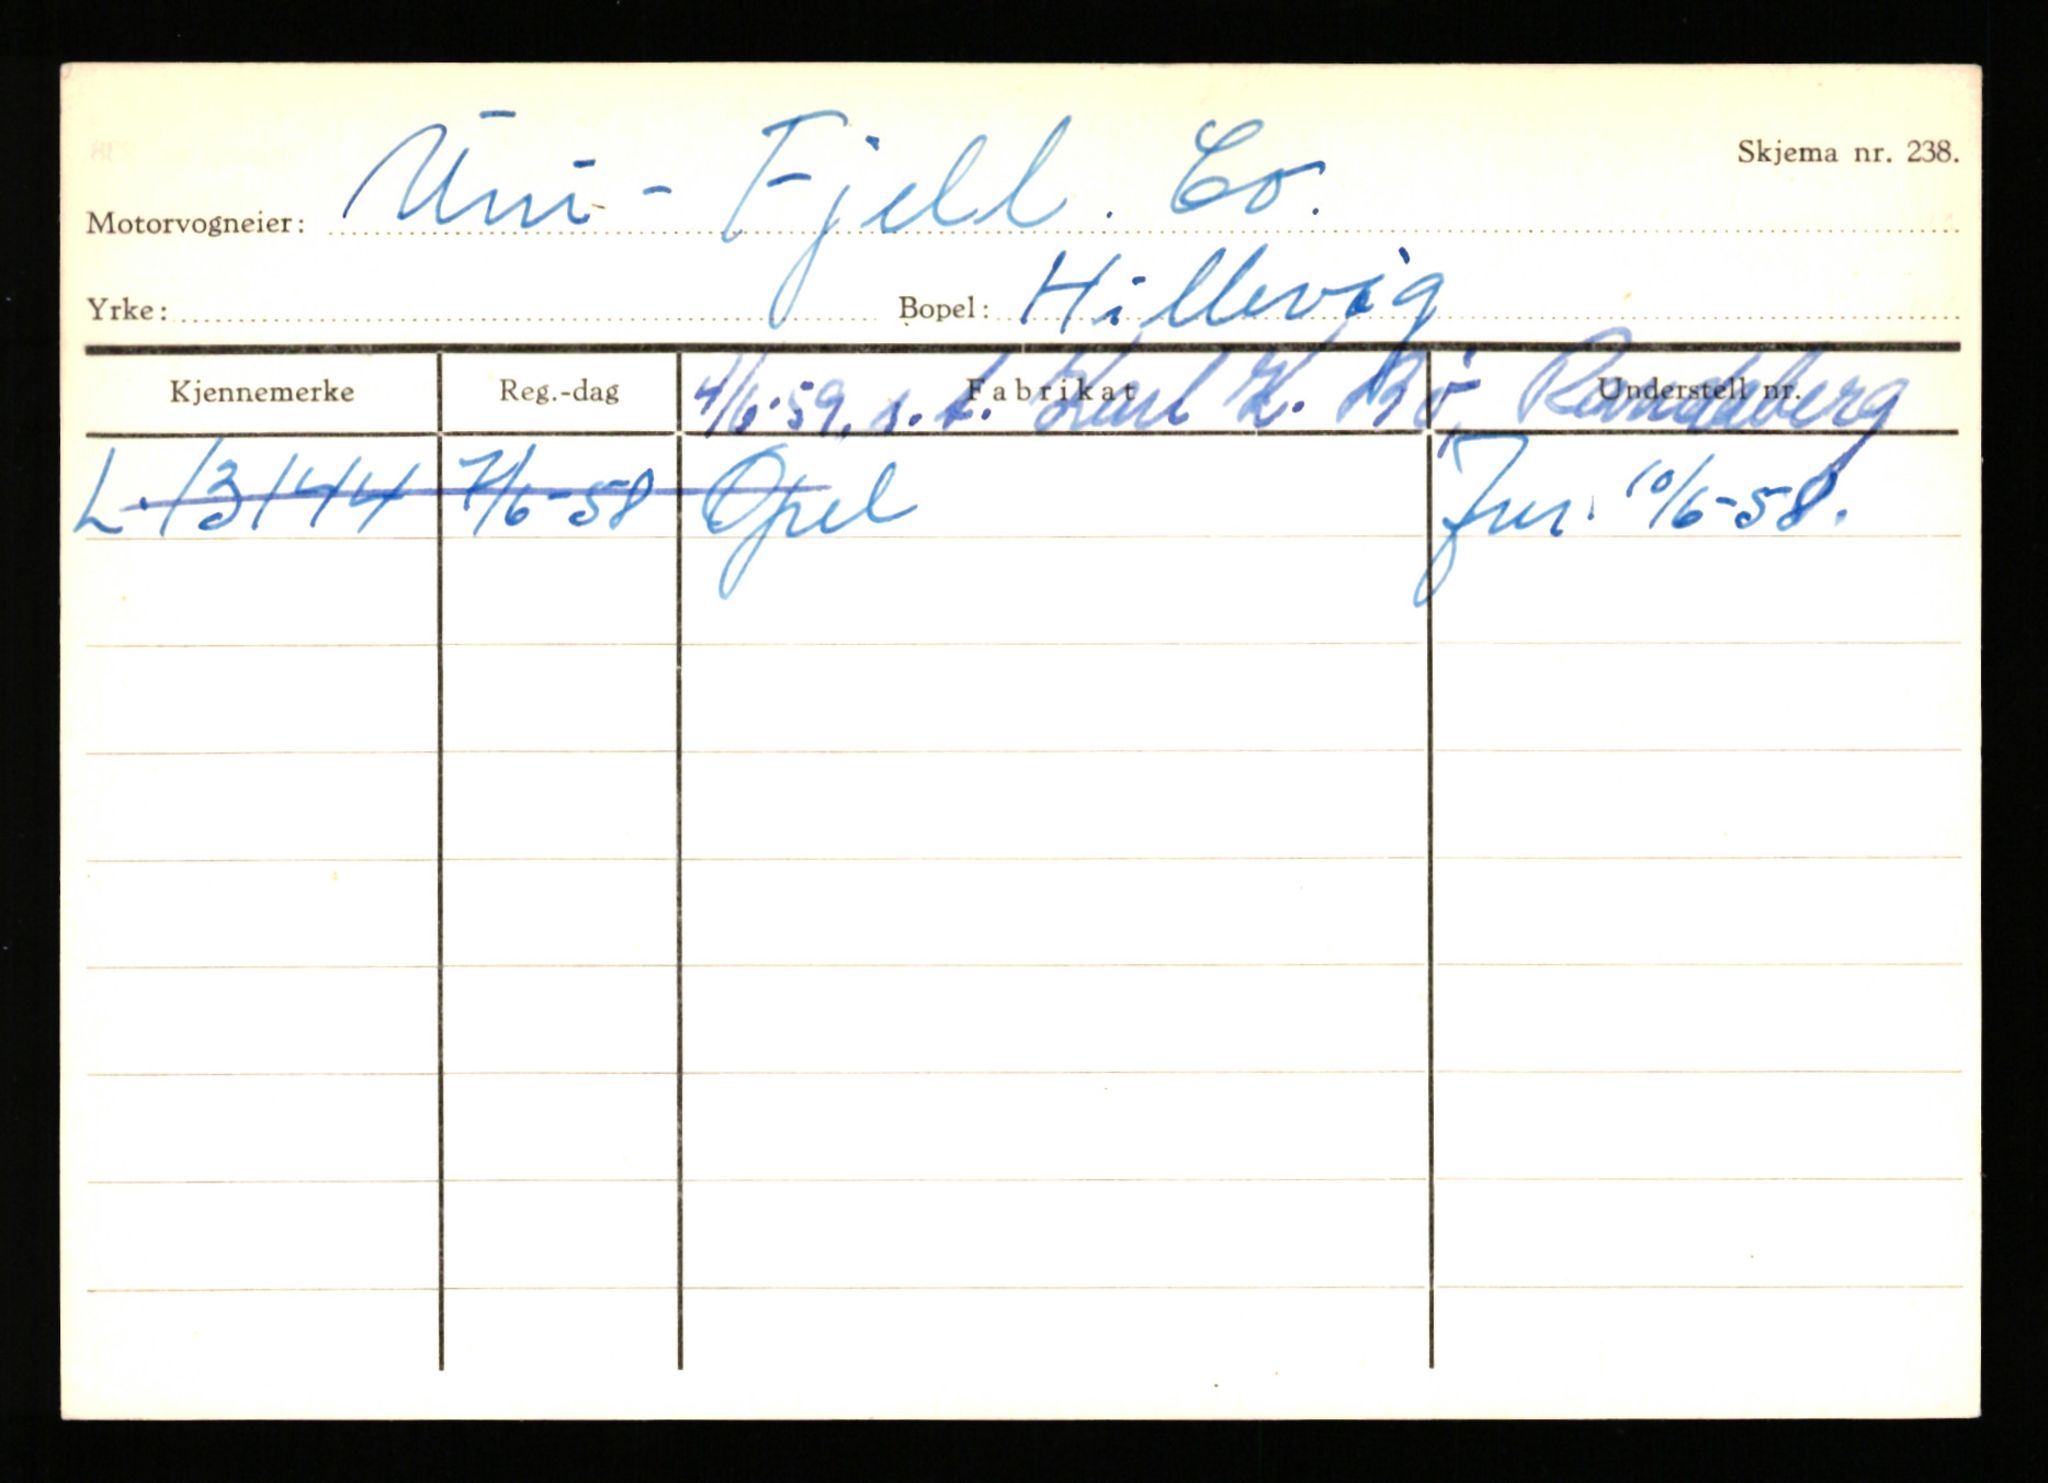 Skjema nr. 238.
Motorvogneier: Uni - Fjell. Co.
Yrke: Bopel: Hillevig
Kjennemerke Reg.-dag Fabrikat Understell nr.
4/6-59. s. t. Karl K. Bö, Randaberg
L. 13144 7/6-58 Opel 10/6-58.